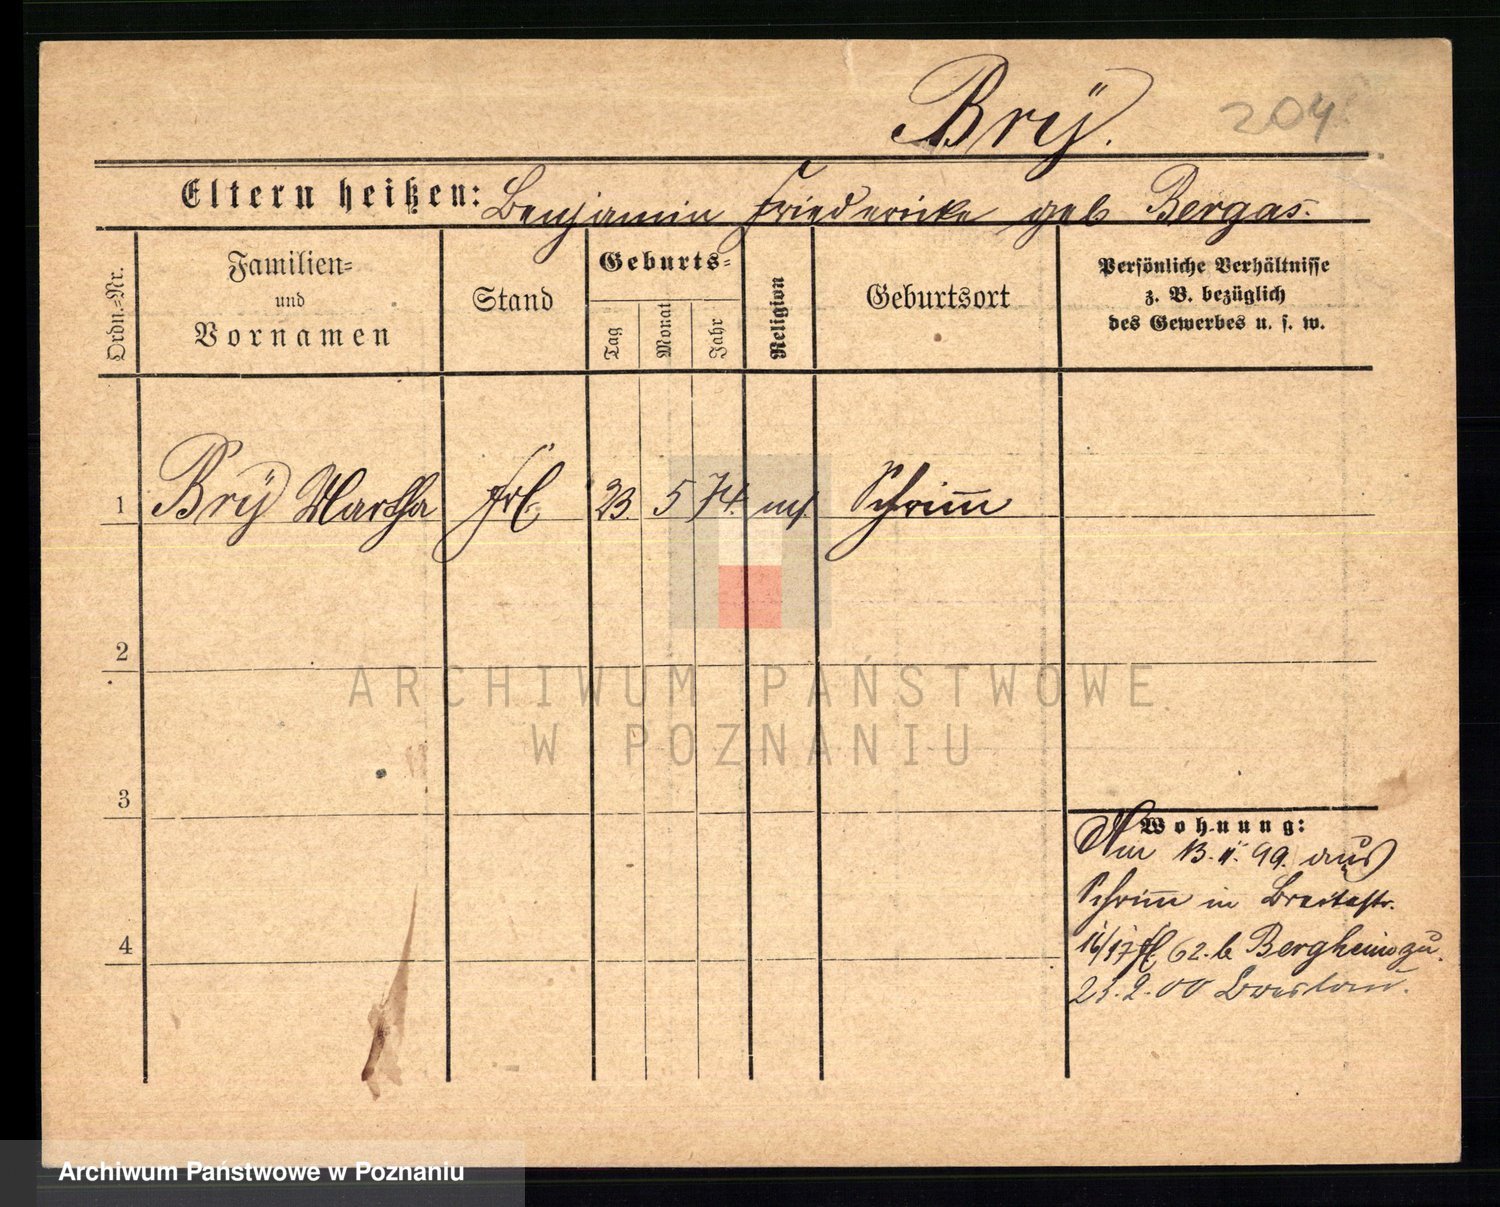 Brÿ. 204
Eltern heißen: Benjamin Friedericke geb Bergas.
Ordn.=Nr.
Familien=
und
Vornamen
Stand
Geburts=
Tag
Monat
Jahr
Religion
Geburtsort
Persönliche Verhältnisse
z. B. bezüglich
des Gewerbes u. s. w.
1 Brÿ Martha Frl. 23. 5 74. mos Schrim̅
2
3
4
Wohnung:
Am 13. 99. aus
Schrim̅ in Breitestr.
62. b Bergheim zu.
2. 00 Breslau.
ARCHIWUM PAŃSTWOWE
W POZNANIU
Archiwum Państwowe w Poznaniu